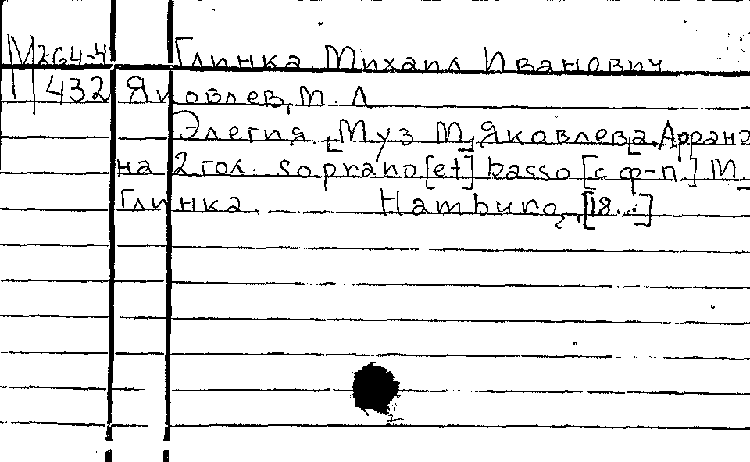 М 264-4 Глинка Михаил Иванович
П 432 Яковлев, М. Л
Элегия [Муз М] Яковлева. Арранж
на 2 гол. soprano [et] basso [с ф-п.] М.
Глинка. Hamburg, [18...]